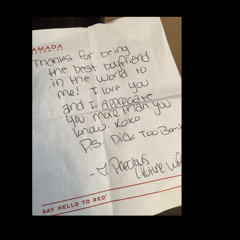 AMADA
Thanks for being
the best boyfriend
in the world to
me! I love you
and I appreciate
you more than you
know. xoxo
Ps Dick Too Bomb
- Precious
future wife
SAY HELLO TO RED